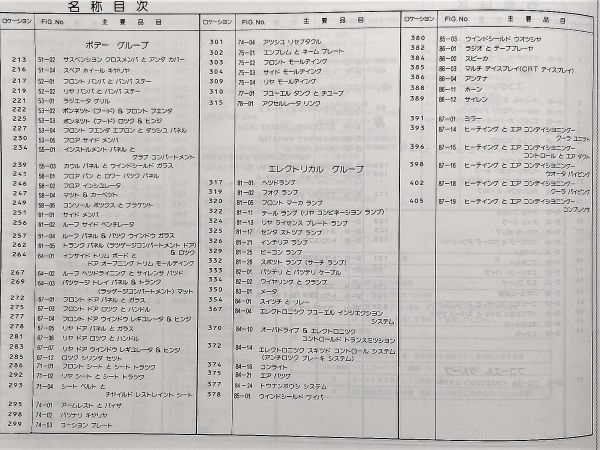 名称目次
ロケーション FIG.No. 主要品目
ボデー グループ
213 51-02 サスペンション クロスメンバ と アンダ カバー
216 51-04 スペア ホイール キャリヤ
217 52-01 フロント バンパ と バンパ ステー
219 52-02 リヤ バンパ と バンパ ステー
221 53-01 ラジエータ グリル
222 53-02 ボンネット(フード) & フロント フエンダ
225 53-03 ボンネット(フード) ロック & ヒンジ
227 53-04 フロント フエンダ エプロン と ダッシュ パネル
230 53-05 フロア サイド メンバ
234 55-01 インストルメント パネル と
グラブ コンパートメント
239 55-03 カウル パネル と ウインドシールド ガラス
241 58-01 フロア パン と ロワー バック パネル
246 58-02 フロア インシュレータ
247 58-04 マット & カーペット
249 58-05 コンソール ボックス と ブラケット
251 61-01 サイド メンバ
256 61-02 ルーフ サイド ベンチレータ
257 61-04 ルーフ パネル & バック ウインドウ ガラス
262 61-05 トランク パネル (ラッゲージコンパートメント ドア)
& ロック
264 64-01 インサイド トリム ボード と
ドア オープニング トリム モールディング
267 64-02 ルーフ ヘッドライニング と サイレンサ パッド
269 64-03 パッケージ トレイ パネル & トランク
(ラッゲージコンパートメント) マット
272 67-01 フロント ドア パネル と ガラス
275 67-03 フロント ドア ロック と ハンドル
277 67-04 フロント ドア ウインドウ レギュレータ & ヒンジ
278 67-05 リヤ ドア パネル と ガラス
281 67-06 リヤ ドア ロック と ハンドル
283 67-07 リヤ ドア ウインドウ レギュレータ & ヒンジ
285 67-12 ロック シリンダ セット
286 71-01 フロント シート と シート トラック
292 71-02 リヤ シート と シート トラック
293 71-04 シート ベルト と
チャイルド レストレイント シート
295 74-01 アームレスト と バイザ
298 74-02 バッテリ キャリヤ
299 74-03 コーション プレート
ロケーション FIG.No. 主要品目
301 74-04 アッシュ リセプタクル
302 75-01 エンブレム と ネーム プレート
303 75-02 フロント モールディング
304 75-03 サイド モールディング
309 75-04 リヤ モールディング
310 77-01 フューエル タンク と チューブ
315 78-01 アクセルレータ リンク
エレクトリカル グループ
317 81-01 ヘッドランプ
319 81-02 フォグ ランプ
320 81-05 フロント マーカ ランプ
322 81-11 テール ランプ (リヤ コンビネーション ランプ)
324 81-13 リヤ ライセンス プレート ランプ
325 81-17 センタ ストップ ランプ
326 81-21 インテリア ランプ
329 81-25 ビーコン ランプ
332 81-32 スポット ランプ (サーチ ランプ)
333 82-01 バッテリ と バッテリ ケーブル
334 82-02 ワイヤリング と クランプ
350 83-01 メータ
354 84-01 スイッチ と リレー
367 84-04 エレクトロニック フユーエル インジェクション
システム
370 84-10 オーバドライブ & エレクトロニック
コントロールド トランスミッション
372 84-14 エレクトロニック スキッド コントロール システム
(アンチロック ブレーキ システム)
374 84-16 コンライト
375 84-21 エア バッグ
377 84-24 トウナンボウシ システム
378 85-01 ウインドシールド ワイパ
ロケーション FIG.No. 主要品目
380 85-03 ウインドシールド ウオッシャ
382 86-01 ラジオ と テーププレーヤ
384 86-02 スピーカ
385 86-03 マルチ ディスプレイ(CRT ディスプレイ)
386 86-04 アンテナ
388 86-11 ホーン
389 86-12 サイレン
391 87-01 ミラー
393 87-14 ヒーティング と エア コンディショニングー
クーラ ユニット
396 87-15 ヒーティング と エア コンディショニングー
コントロール と エア ダクト
398 87-16 ヒーティング と エア コンディショニングー
ウオータ パイピング
402 87-18 ヒーティング と エア コンディショニングー
クーラ パイピング
405 87-19 ヒーティング と エア コンディショニングー
コンプレッサ